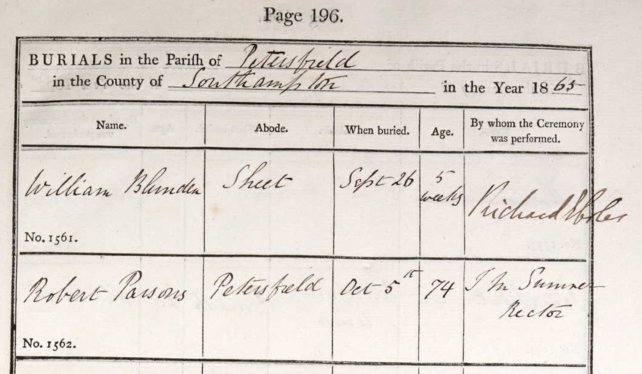 Page 196.
BURIALS in the Parish of Petersfield
in the County of Southampton in the Year 1865
Name. Abode. When buried. Age. By whom the Ceremony was performed.
William Blunden Sheet Sept 26 5 weeks Richard
No. 1561.
Robert Parsons Petersfield Oct 5th 74 J M Sumner Rector
No. 1562.